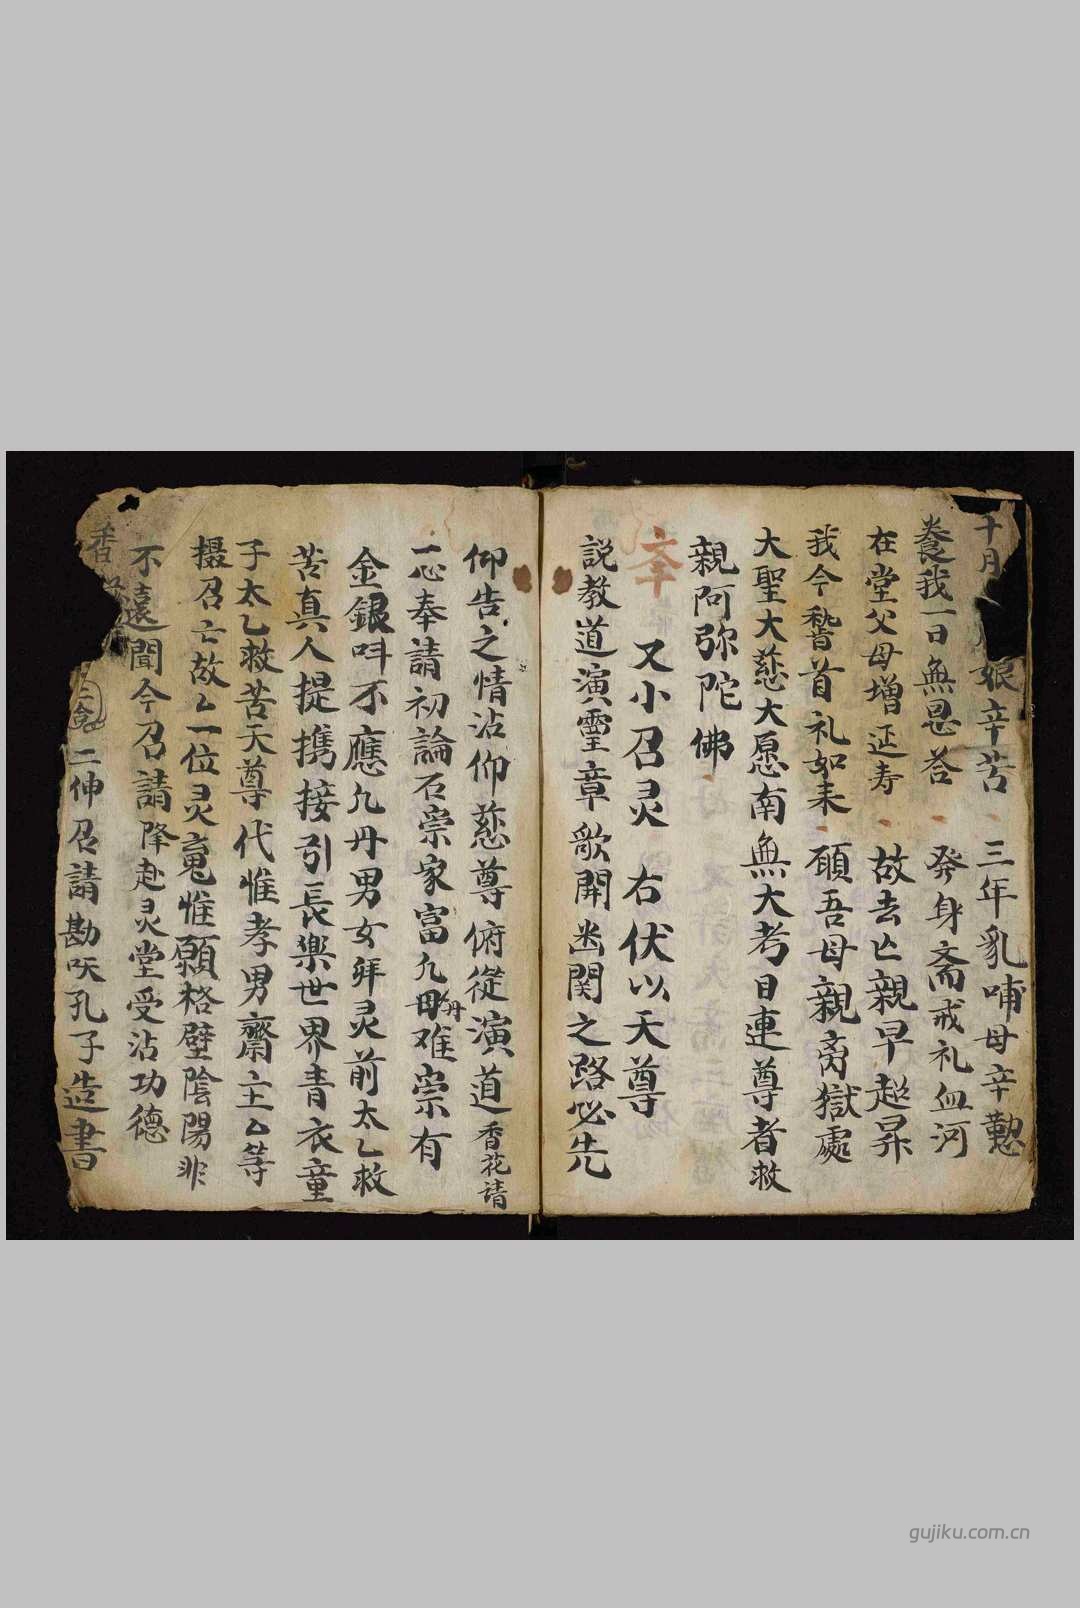 十月 娘辛苦 三年乳哺母辛懃
養我一日無恩荅 發身斋戒礼血河
在堂父母增延寿 故去亡親早超昇
我今稽首礼如来 願吾母親离獄處
大聖大慈大愿南無大考目連尊者救
親阿弥陀佛
又小召灵 右伏以天尊
説教道演靈章歌開幽関之路必先
仰告之情沾仰慈尊俯從演道香花請
一心奉請初論石崇家富九毋难崇有
金銀呌不應九丹男女拜灵前太乙救
苦真人提携接引長樂世界青衣童
子太乙救苦天尊代惟孝男齋主厶等
摄召亡故厶一位灵嵬惟願格壁陰陽非
不遠聞今召請降赴灵堂受沾功德
香 二伸召請勘吙孔子造書
gujiku.com.cn